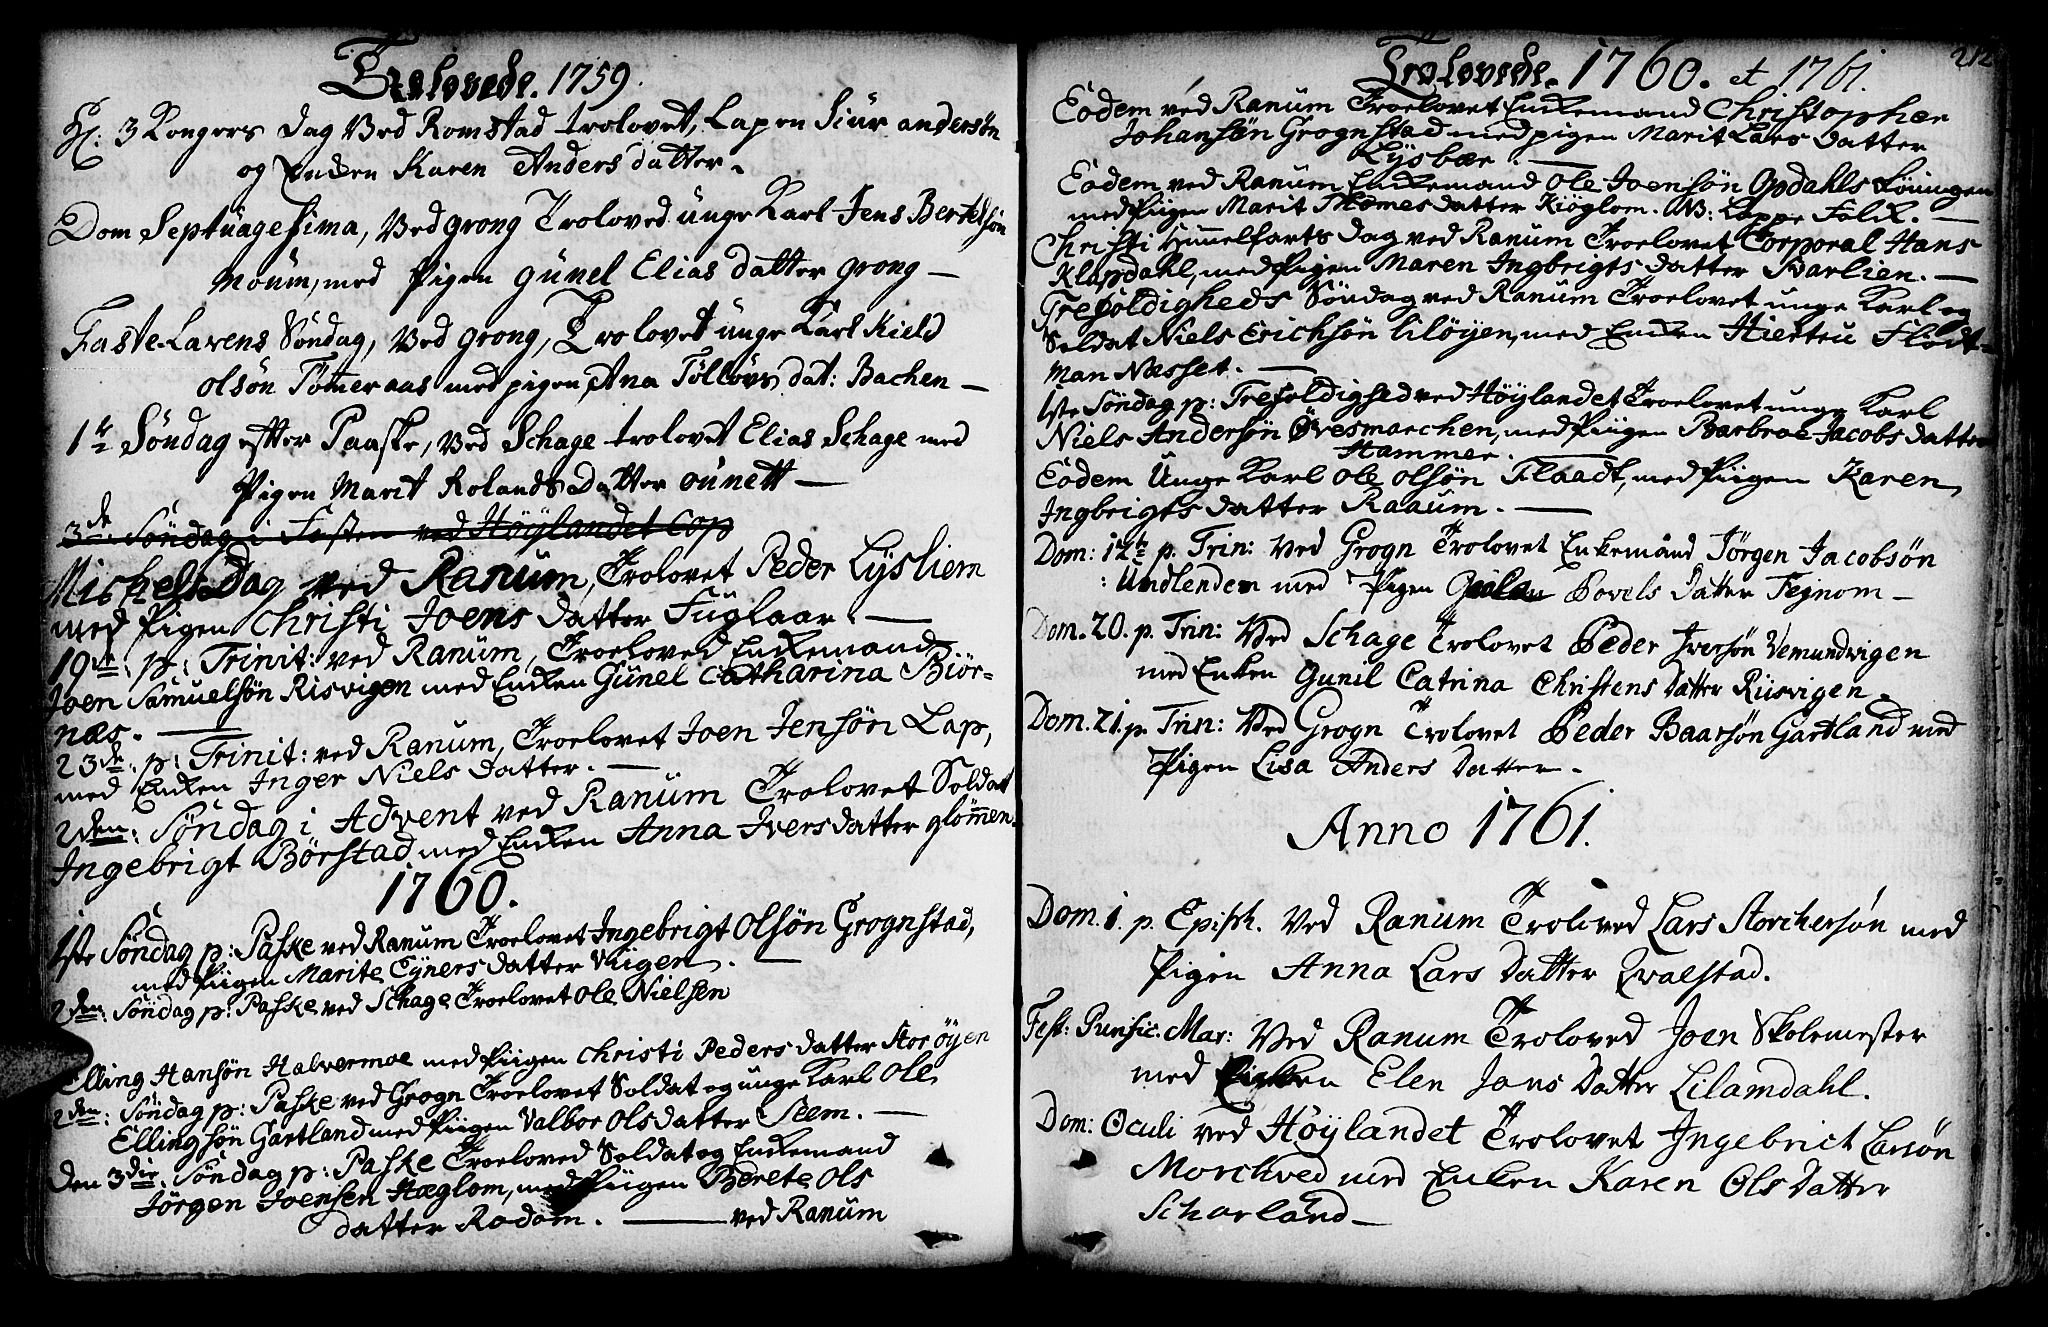 Trolovede. 1759.
H: 3 Kongers Dag Ved Romstad trolovet, Lapen Siur andersøn
og Enken Karen Anders datter.
Dom Septuagesima, Ved grong Troloved unge Karl Jens Bertelsøn
Moüm, med Pigen günel Elias datter grong —
Faste-Lavens Søndag, Ved grong, Trolovet unge Karl Kield
olsøn Tømeraas med pigen, Ana Tollövs dat: Bachen —
1te Søndag efter Paaske, Ved Schage trolovet Elias Schage med
Pigen Marit Rolands Datter ounett —
3de Søndag i Fasten ved Høylandet Cop
Michels Dag ved Ranum, Trolovet Peder Lysliem
med Pigen Christi Joens datter Fuglaar. —
19de: p: Trinit: ved Ranum, Troeloved Enckemand
Joen Samuelsøn Risvigen med Encken Günel Catharina Biör-
næs. —
23de: p: Trinit: ved Ranum, Troelovet Joen Jensøn Lap,
med Encken Inger Niels datter. —
2den: Søndag i Advent ved Ranum Trolovet Soldat
Ingebrigt Börstad med Encken Anna Ivers datter glömmen.
1760.
1ste Søndag p: Paske ved Ranum Troelovet Ingebrigt Olsøn Grognstad,
med Piigen Marite Eyners datter Viigen. —
2den: Søndag p: Paske ved Schage Troelovet Ole Nielsen
Elling Hansøn Halvermoe med Piigen Christi Peders datter Storøyen
2den: Søndag p: Paske ved Grogn Troelovet Soldat og unge Karl Ole
Ellingsøn Gartland med Piigen Valbor Ols datter Seem. —
Den 3die Søndag p: Paske Troeloved Soldat og Enckemand
Jörgen Joensen Hæglom, med Piigen Berete Ols
datter Rodom. — ved Ranum
Trolovede. 1760. et 1761.
212
Eodem ved Ranum Troelovet Enckemand Christopher
Johansøn Grognstad med pigen Marit Lars datter
Lysbær. —
Eodem ved Ranum Enckemand Ole Joensøn Opdahls Löningen
med Piigen Marit Thomes datter Kiöglom. NB: Lappe Folck. —
Christi Himmelfarts Dag ved Ranum Troelovet Corporal Hans
Klapdahl, med Piigen Maren Ingbrigts datter Barlien. —
Trefoldigheds Söndag ved Ranum Troelovet unge Karl og
Soldat Niels Erichsøn Liløyen, med Encken Hiertru Flodt-
man Næsset. —
1ste Søndag p: Trefoldighed ved Høylandet Troelovet unge Karl
Niels Andersøn Övesmarchen, med Piigen Barbroe Jacobs datter
Hammer.
Eodem Unge Karl Ole Olsøn Flaadt, med Piigen Karen
Ingbrigts datter Raaum. —
Dom: 12te p. Trin: Ved Grogn Trolovet Enkemand Jörgen Jacobsøn
Undlendem med Pigen Povels Datter Fejnom —
Dom. 20. p. Trin: Ved Schage Trolovet Peder Iversøn Vemundvigen
med Enken Gunil Catrina Christens Datter Riisvigen.
Dom. 21. p. Trin: Ved Grogn Trolovet Peder Baarsøn Gartland med
Pigen Lisa Anders Datter.
Anno 1761.
Dom. 1. p. Epiph. Ved Ranum Troloved Lars Storchersøn med
Pigen Anna Lars Datter Qvalstad.
Fest: Purific: Mar: Ved Ranum Troloved Joen Skolemester
med Enken Elen Jons Datter Lilamdahl.
Dom: Oculi ved Høylandet Trolovet Ingebrict Larsøn
Morchved med Enken Karen Ols Datter
Scharland —